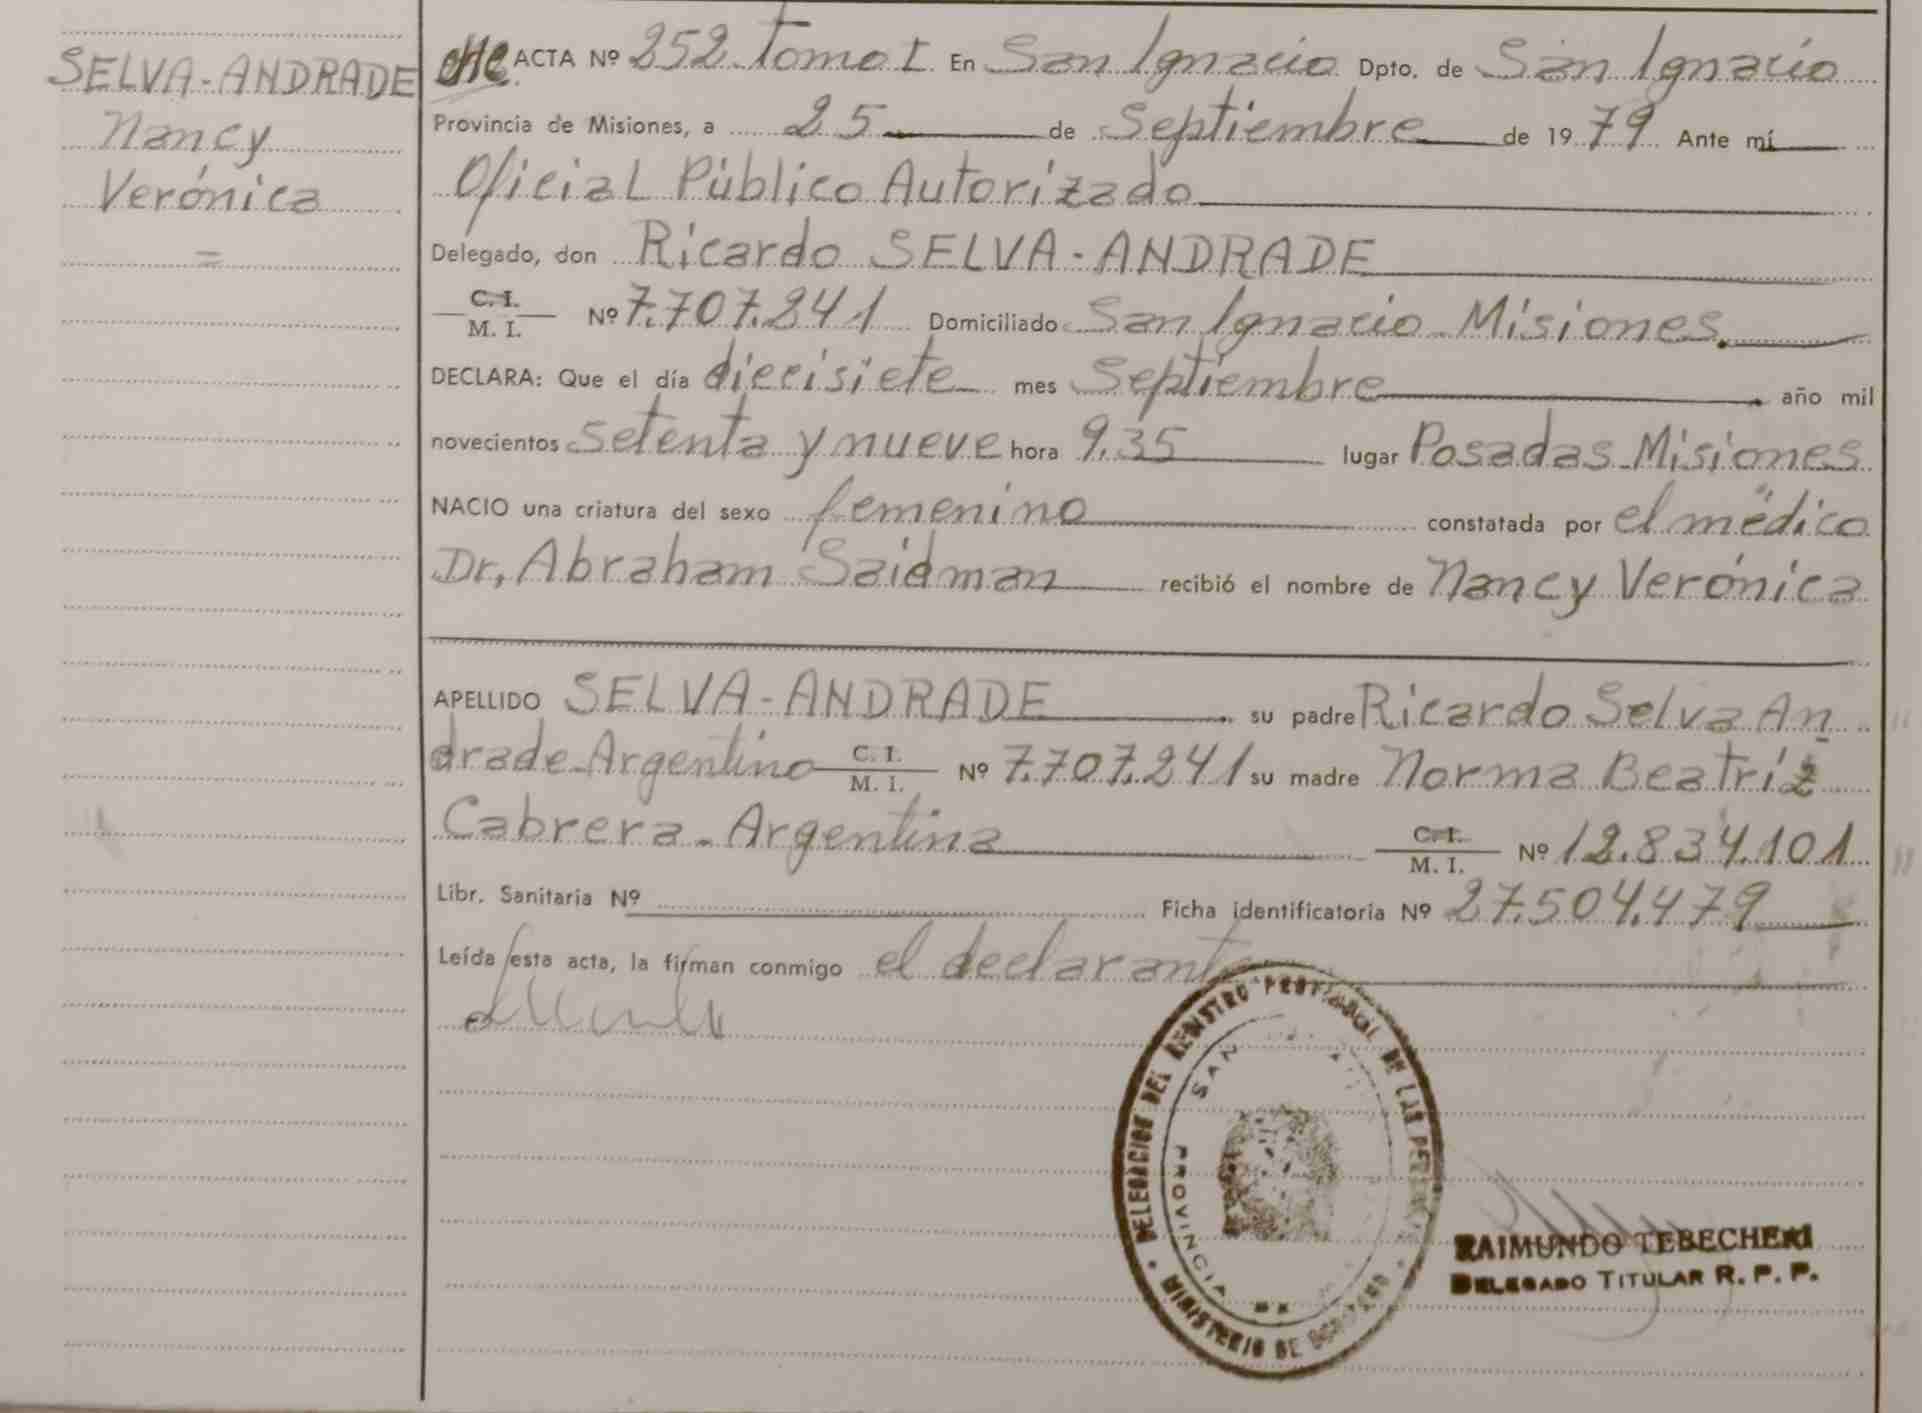 SELVA-ANDRADE
Nancy
Verónica
=
ACTA Nº 252 Tomo I En San Ignacio Dpto. de San Ignacio
Provincia de Misiones, a 25 de Septiembre de 1979 Ante mí
Oficial Público Autorizado
Delegado, don Ricardo SELVA-ANDRADE
C. I.
M. I. Nº 7.707.241 Domiciliado San Ignacio Misiones.
DECLARA: Que el día diecisiete mes Septiembre año mil
novecientos setenta y nueve hora 9.35 lugar Posadas Misiones
NACIO una criatura del sexo femenino constatada por el médico
Dr. Abraham Saidman recibió el nombre de Nancy Verónica
APELLIDO SELVA-ANDRADE su padre Ricardo Selva An
drade Argentino C. I.
M. I. Nº 7.707.241 su madre Norma Beatríz
Cabrera - Argentina C. I.
M. I. Nº 12.834.101
Libr. Sanitaria Nº Ficha identificatoria Nº 27.504.479
Leída esta acta, la firman conmigo el declarante
DELEGACION DEL REGISTRO PROVINCIAL DE LAS
SAN
PROVINCIA
MINISTERIO DE GOBIERNO
RAIMUNDO TEBECHERI
DELEGADO TITULAR R. P. P.